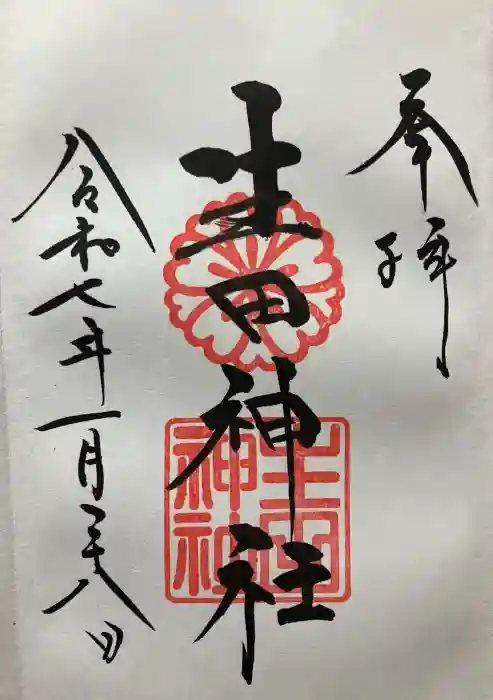 奉拝
生田神社
生田神社
令和七年一月二十八日